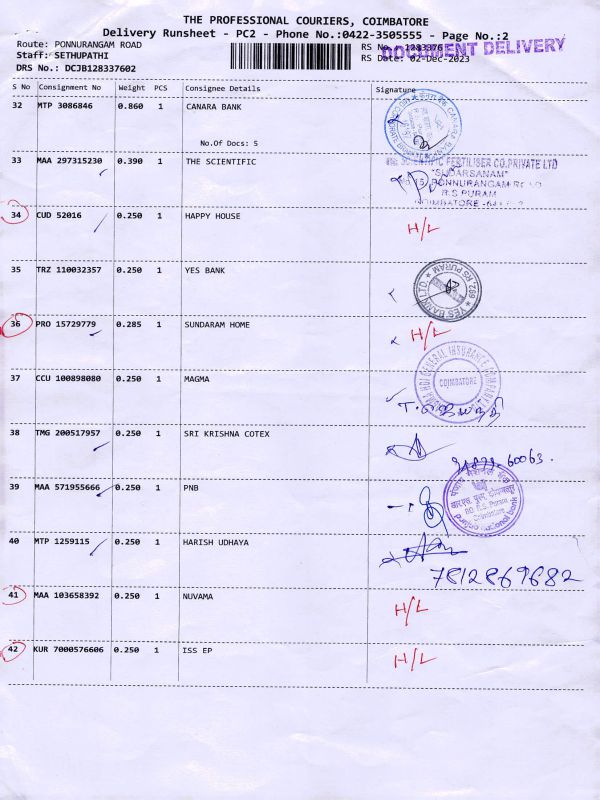 THE PROFESSIONAL COURIERS, COIMBATORE
Delivery Runsheet - PC2 - Phone No.:0422-3505555 - Page No.:2
Route: PONNURANGAM ROAD
Staff: SETHUPATHI
DRS No.: DCJB128337602
RS No.: 1283376
DOCUMENT DELIVERY
RS Date: 02-Dec-2023
S No Consignment No Weight PCS Consignee Details Signature
32 MTP 3086846 0.860 1 CANARA BANK
No.Of Docs: 5
33 MAA 297315230 0.390 1 THE SCIENTIFIC
SCIENTIFIC FERTILISER CO.PRIVATE LTD
"SUDARSANAM"
PONNURANGAM ROAD
R.S PURAM
COIMBATORE
34 CUD 52016 0.250 1 HAPPY HOUSE H/L
35 TRZ 110032357 0.250 1 YES BANK
YES BANK LTD. * 692, RS PURAM *
36 PRO 15729779 0.285 1 SUNDARAM HOME H/L
37 CCU 100898080 0.250 1 MAGMA
GENERAL INSURANCE COMPANY
COIMBATORE
38 TMG 200517957 0.250 1 SRI KRISHNA COTEX
60063.
39 MAA 571955666 0.250 1 PNB
R.S. Puram
Coimbatore
punjab national bank
40 MTP 1259115 0.250 1 HARISH UDHAYA
7812869682
41 MAA 103658392 0.250 1 NUVAMA H/L
42 KUR 7000576606 0.250 1 ISS EP H/L